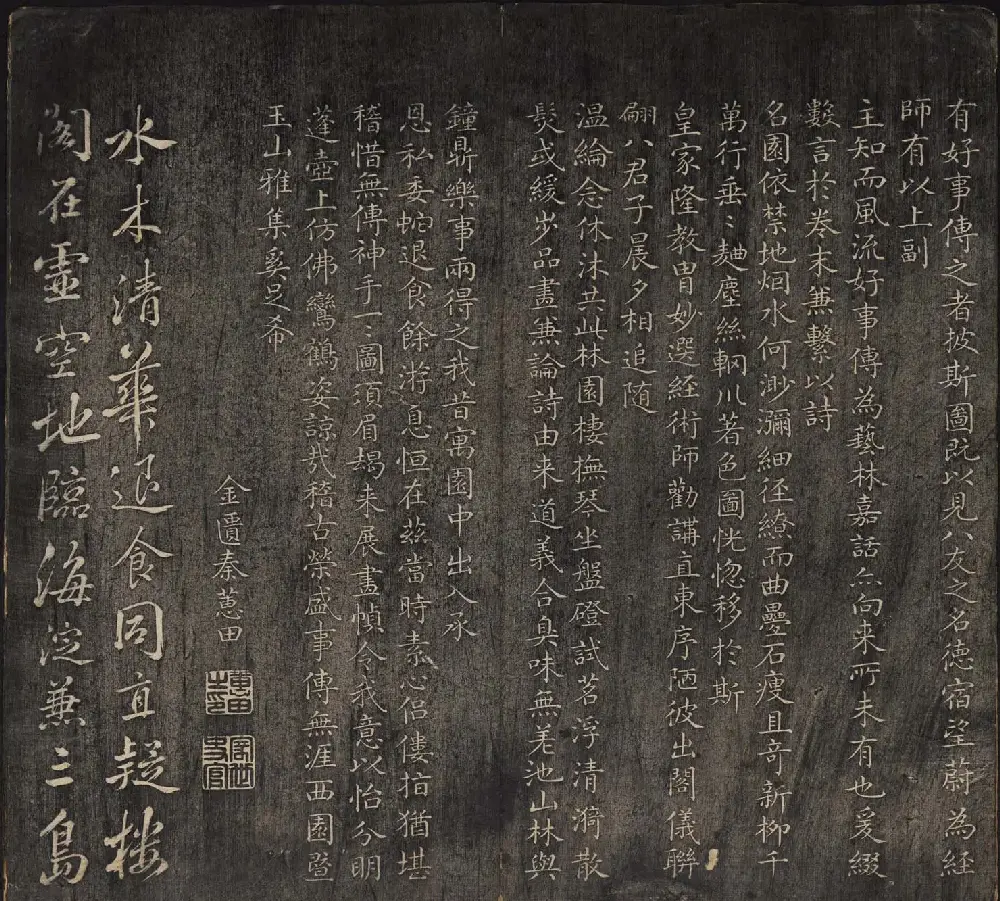 有好事傳之者披斯圖既以見八友之名德宿望蔚為経
師有以上副
主知而風流好事傳為藝林嘉話亦向来所未有也爰綴
數言於卷末兼繫以詩
名園依禁地烟水何渺瀰細徑繚而曲疊石瘦且竒新柳千
萬行垂〻麯塵絲輞川著色圖恍惚移於斯
皇家隆教胄妙選経術師勸講直東序陋彼出閣儀聯
翩八君子晨夕相追随
温綸念休沐共此林園棲撫琴坐盤磴試茗浮清漪散
髮或緩步品畫兼論詩由来道義合臭味無差池山林與
鐘鼎樂事兩得之我昔寓園中出入承
恩私委蛇退食餘游息恒在茲當時素心侶僂指猶堪
稽惜無傳神手一〻圖須眉朅来展畫幀令我意以怡分明
蓬壺上仿佛鸞鶴姿諒哉稽古榮盛事傳無涯西園暨
玉山雅集奚足希
金匱秦蕙田
蕙田之印
水木清華退食同直疑樓
閣在靈空地臨海淀兼三島